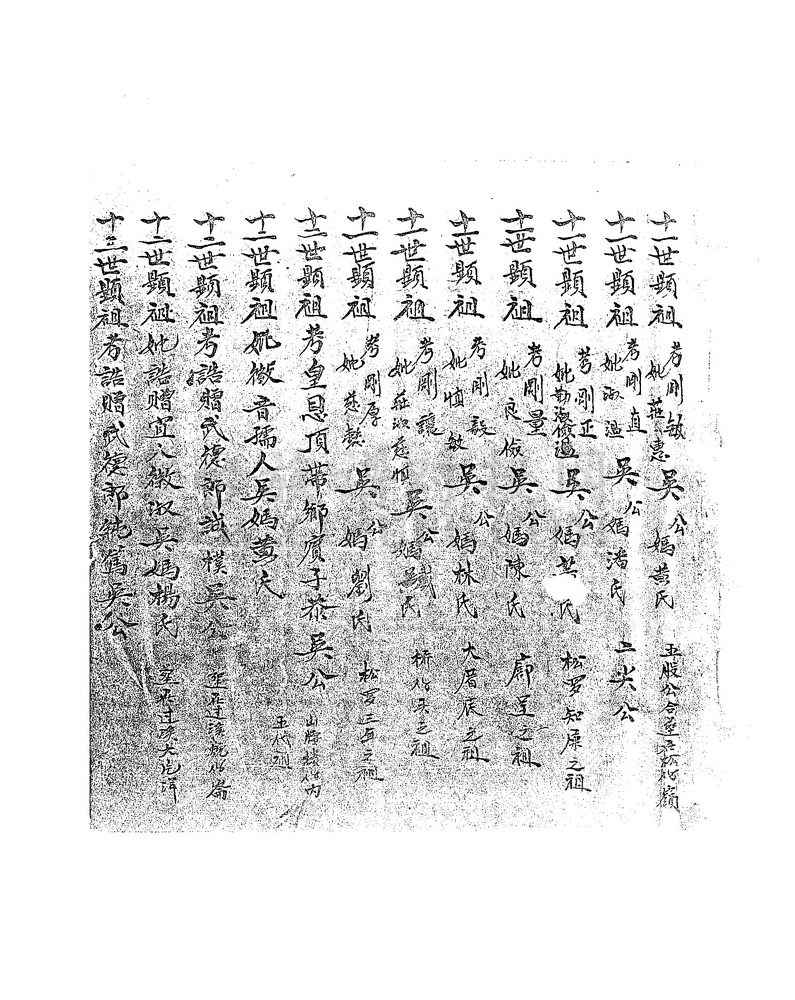 十一世顯祖 考剛敏 妣莊惠 吳公媽黃氏
十一世顯祖 考剛直 妣淑溫 吳公媽潘氏 二尖公
十一世顯祖 考剛正 妣勤淑儉溫 吳公媽 氏 松罗知屎之祖
十一世顯祖 考剛量 妣良儉 吳公媽陳氏 廊里之祖
十一世顯祖 考剛毅 妣慎敏 吳公媽林氏 大厝底之祖
十一世顯祖 考剛讓 妣莊淑慈慎 吳公媽 氏 橋仔头之祖
十一世顯祖 考剛厚 妣慈懿 吳公媽劉氏 松罗三房之祖
十二世顯祖考皇恩頂帶鄉賓子恭吳公
十二世顯祖妣徽音孺人吳媽黃氏 五代祖
十二世顯祖考誥贈武德郎誠樸吳公
十二世顯祖妣誥贈宜人徽淑吳媽楊氏
十三世顯祖考誥贈武德郎純篤吳公